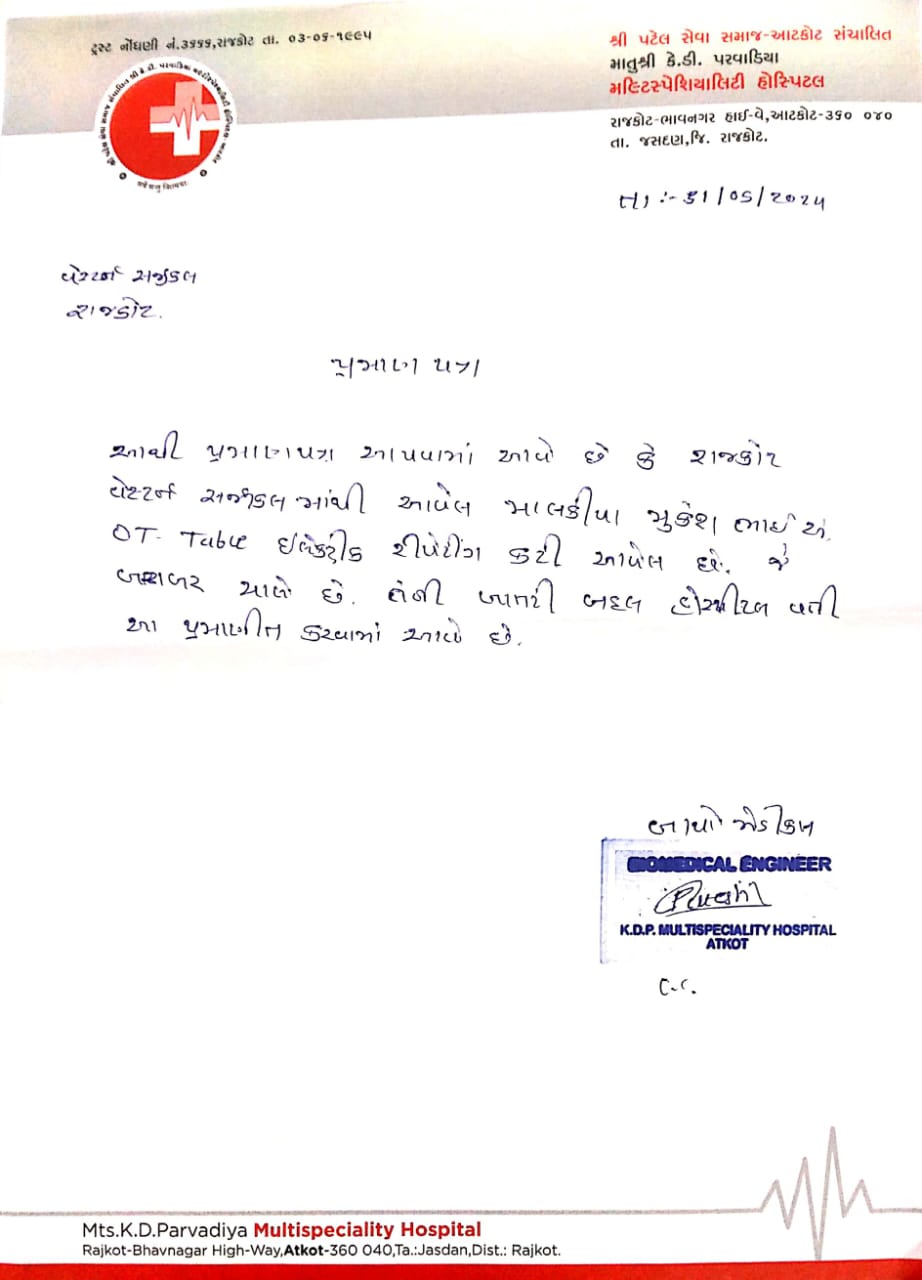 ટ્રસ્ટ નોંધણી નં.૩૬૬૬,રાજકોટ તા. ૦૩-૦૬-૧૯૯૫
શ્રી પટેલ સેવા સમાજ-આટકોટ સંચાલિત
માતુશ્રી કે.ડી. પરવાડિયા
મલ્ટિસ્પેશિયાલિટી હોસ્પિટલ
રાજકોટ-ભાવનગર હાઈ-વે,આટકોટ-૩૬૦ ૦૪૦
તા. જસદણ,જિ. રાજકોટ.
તા :- ૩૧/૦૬/૨૦૨૫
વેસ્ટર્ન સર્જીકલ
રાજકોટ.
પ્રમાણ પત્ર
આથી પ્રમાણપત્ર આપવામાં આવે છે કે રાજકોટ
વેસ્ટર્ન સર્જીકલ માંથી આવેલ માલકીયા મુકેશ ભાઈ એ.
OT- Table ઇલેક્ટ્રીક રીપેરીંગ કરી આપેલ છે. જે
બરાબર ચાલે છે. તેની ખાતરી બદલ હોસ્પીટલ વતી
આ પ્રમાણીત કરવામાં આવે છે.
બાયો મેડીકલ
BIOMEDICAL ENGINEER
K.D.P. MULTISPECIALITY HOSPITAL
ATKOT
C.C.
Mts.K.D.Parvadiya Multispeciality Hospital
Rajkot-Bhavnagar High-Way,Atkot-360 040,Ta.:Jasdan,Dist.: Rajkot.